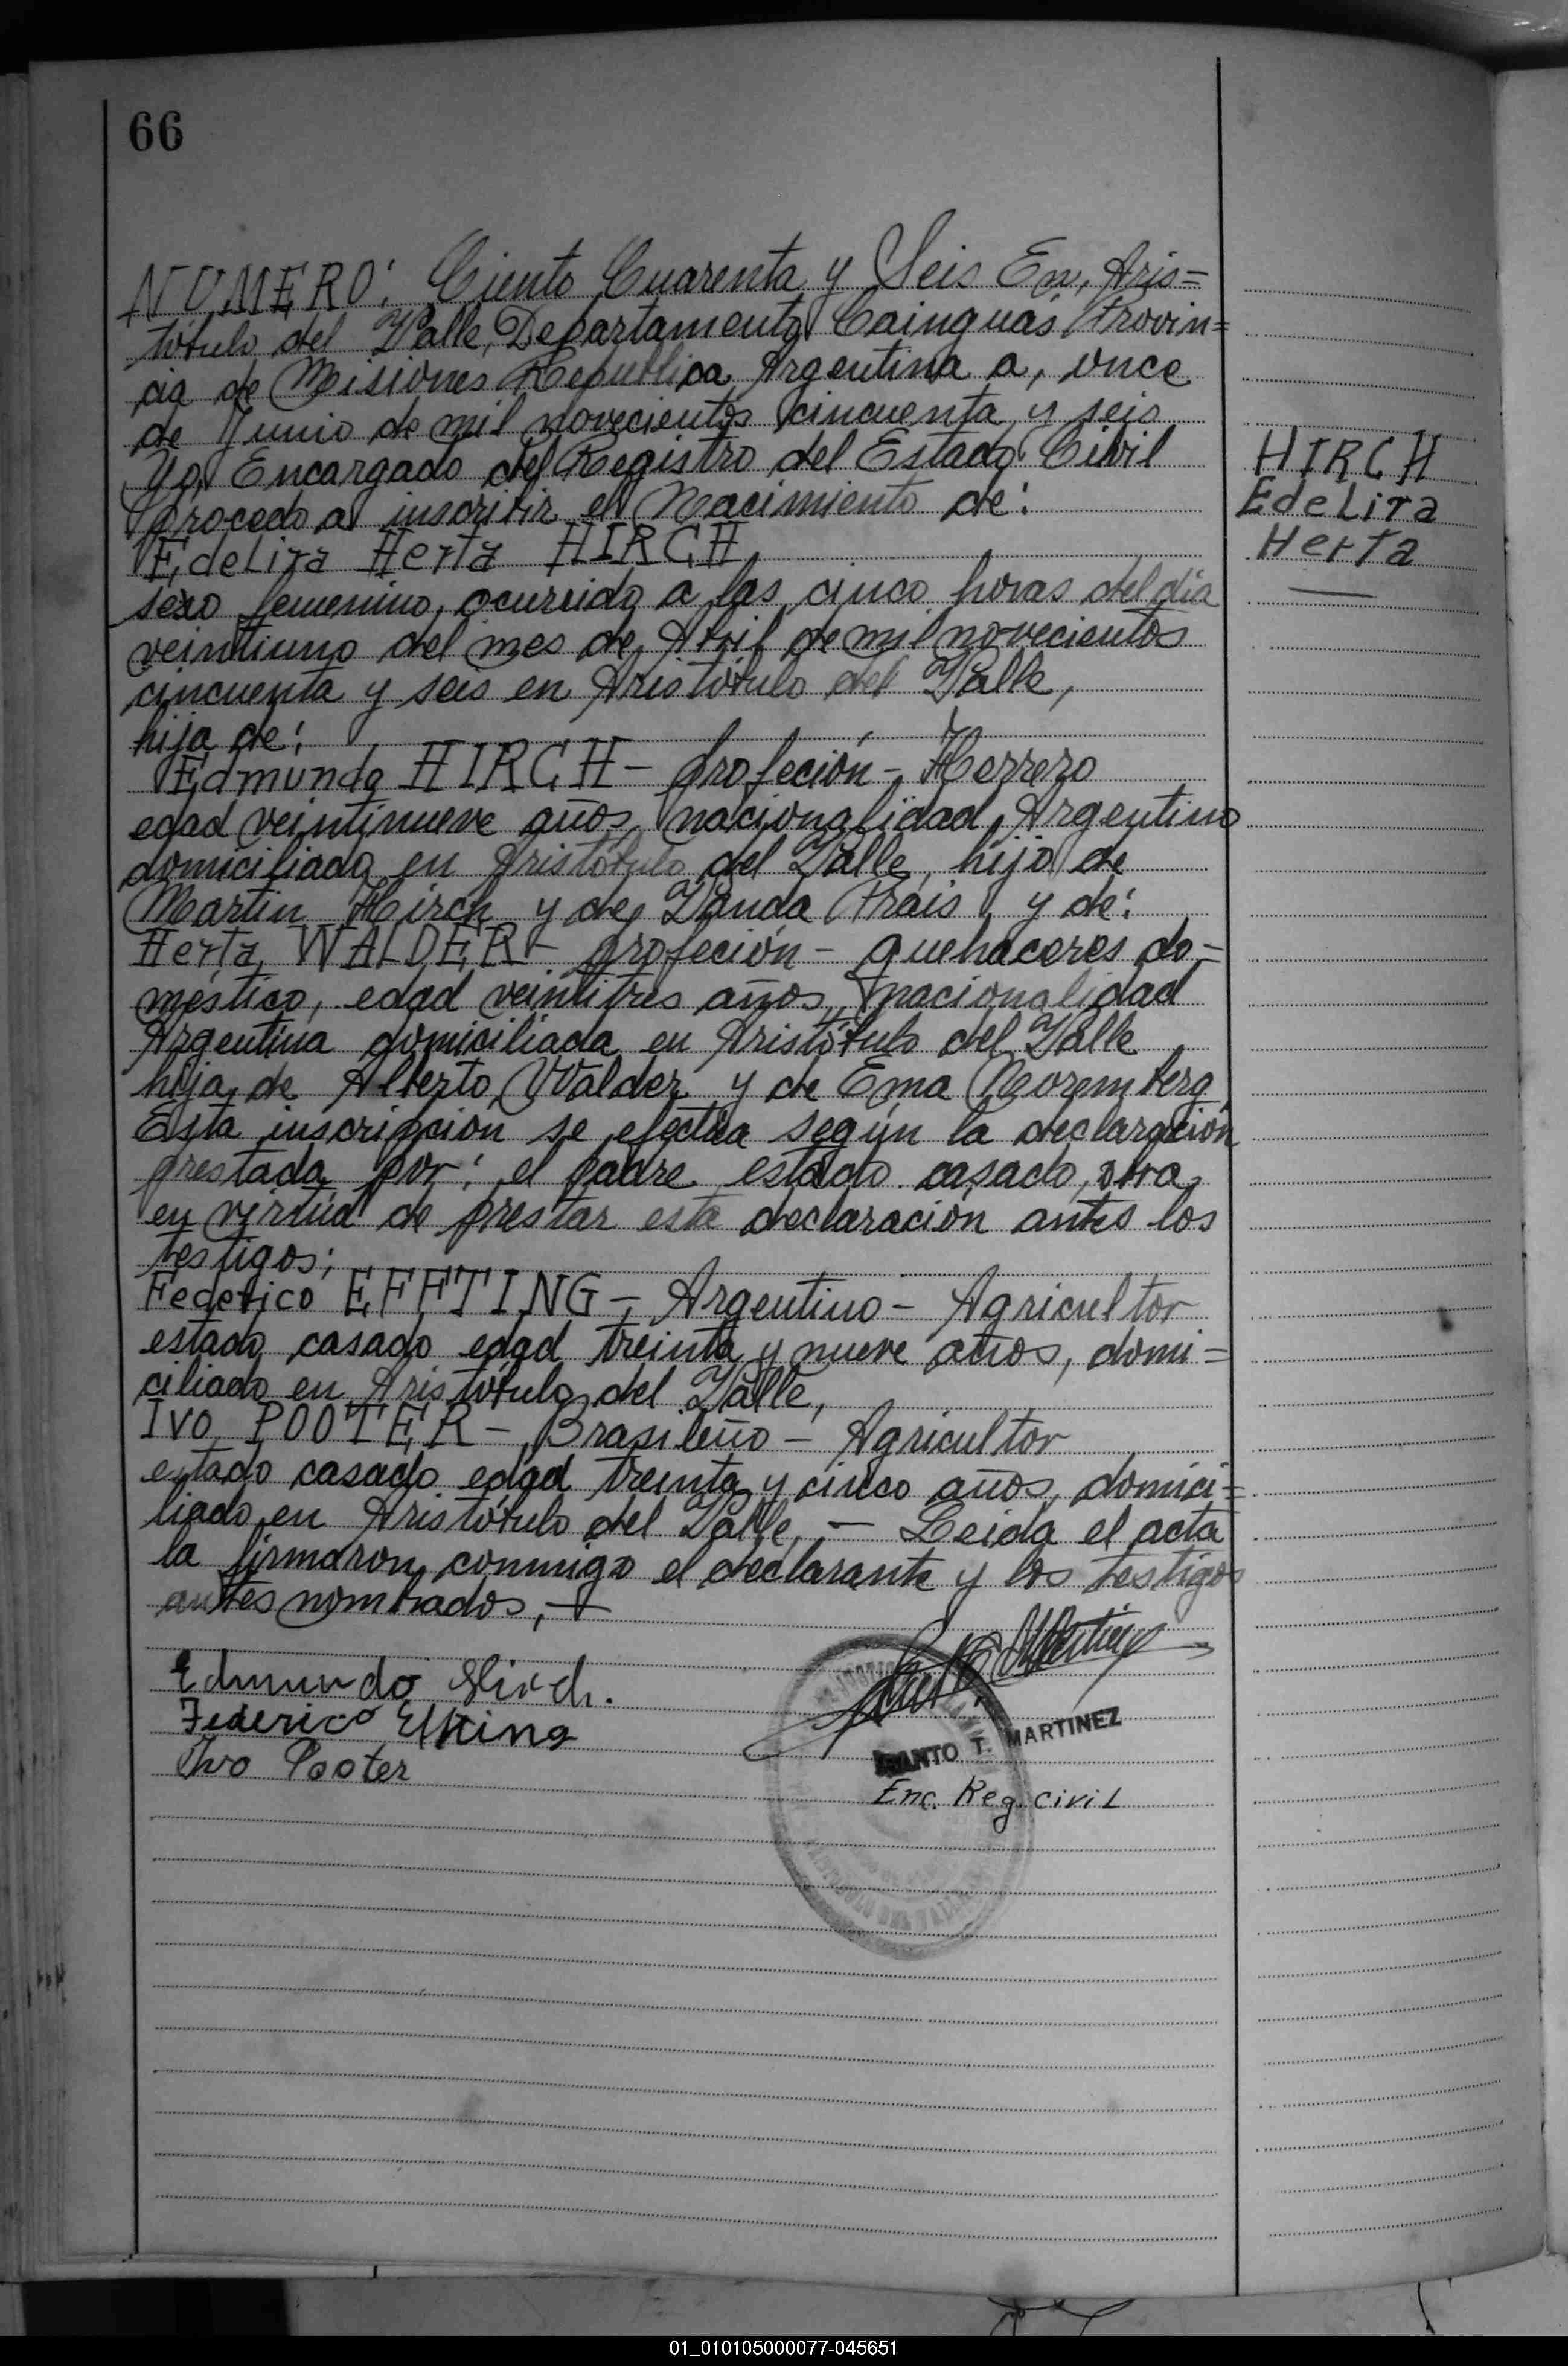 66
NUMERO: Ciento Cuarenta y Seis En, Aris=
tótulo del Valle, Departamento Cainguás Provin=
cia de Misiones Republica Argentina a, once
de Junio de mil novecientos cincuenta y seis
Yo, Encargado del Registro del Estado Civil
procedo a inscribir el Nacimiento de:
Edelira Herta HIRCH,
sexo femenino, ocurrido a las cinco horas del día
veintiuno del mes de Abril de mil novecientos
cincuenta y seis en Aristótulo del Valle,
hija de:
Edmundo HIRCH - profeción - Herrero
edad veintinueve años, nacionalidad, Argentino
domiciliado en Aristótulo del Valle, hijo de
Martin Hirch y de, Vanda Prais y de:
Herta WALDER - profeción - quehaceres do-
méstico, edad veintitres años, nacionalidad
Argentina domiciliada en Aristótulo del Valle
hija de Alberto Walder y de Ema Noremberg
Esta inscripción se efectúa según la declaración
prestada por: el padre estado casado,
en virtud de prestar esta declaración antes los
testigos:
Federico EFFTING - Argentino - Agricultor
estado casado edad treinta y nueve años, domi=
ciliado en Aristótulo del Valle,
Ivo POOTER - Brasileño - Agricultor
estado casado edad treinta y cinco años, domici=
liado en Aristótulo del Valle, - Leida el acta
la firmaron conmigo el declarante y los testigos
antes nombrados, -
Edmundo Hirch.
Federico Effting
Ivo Pooter
T. MARTINEZ
Enc. Reg. Civil
HIRCH
Edelira
Herta
01_010105000077-045651